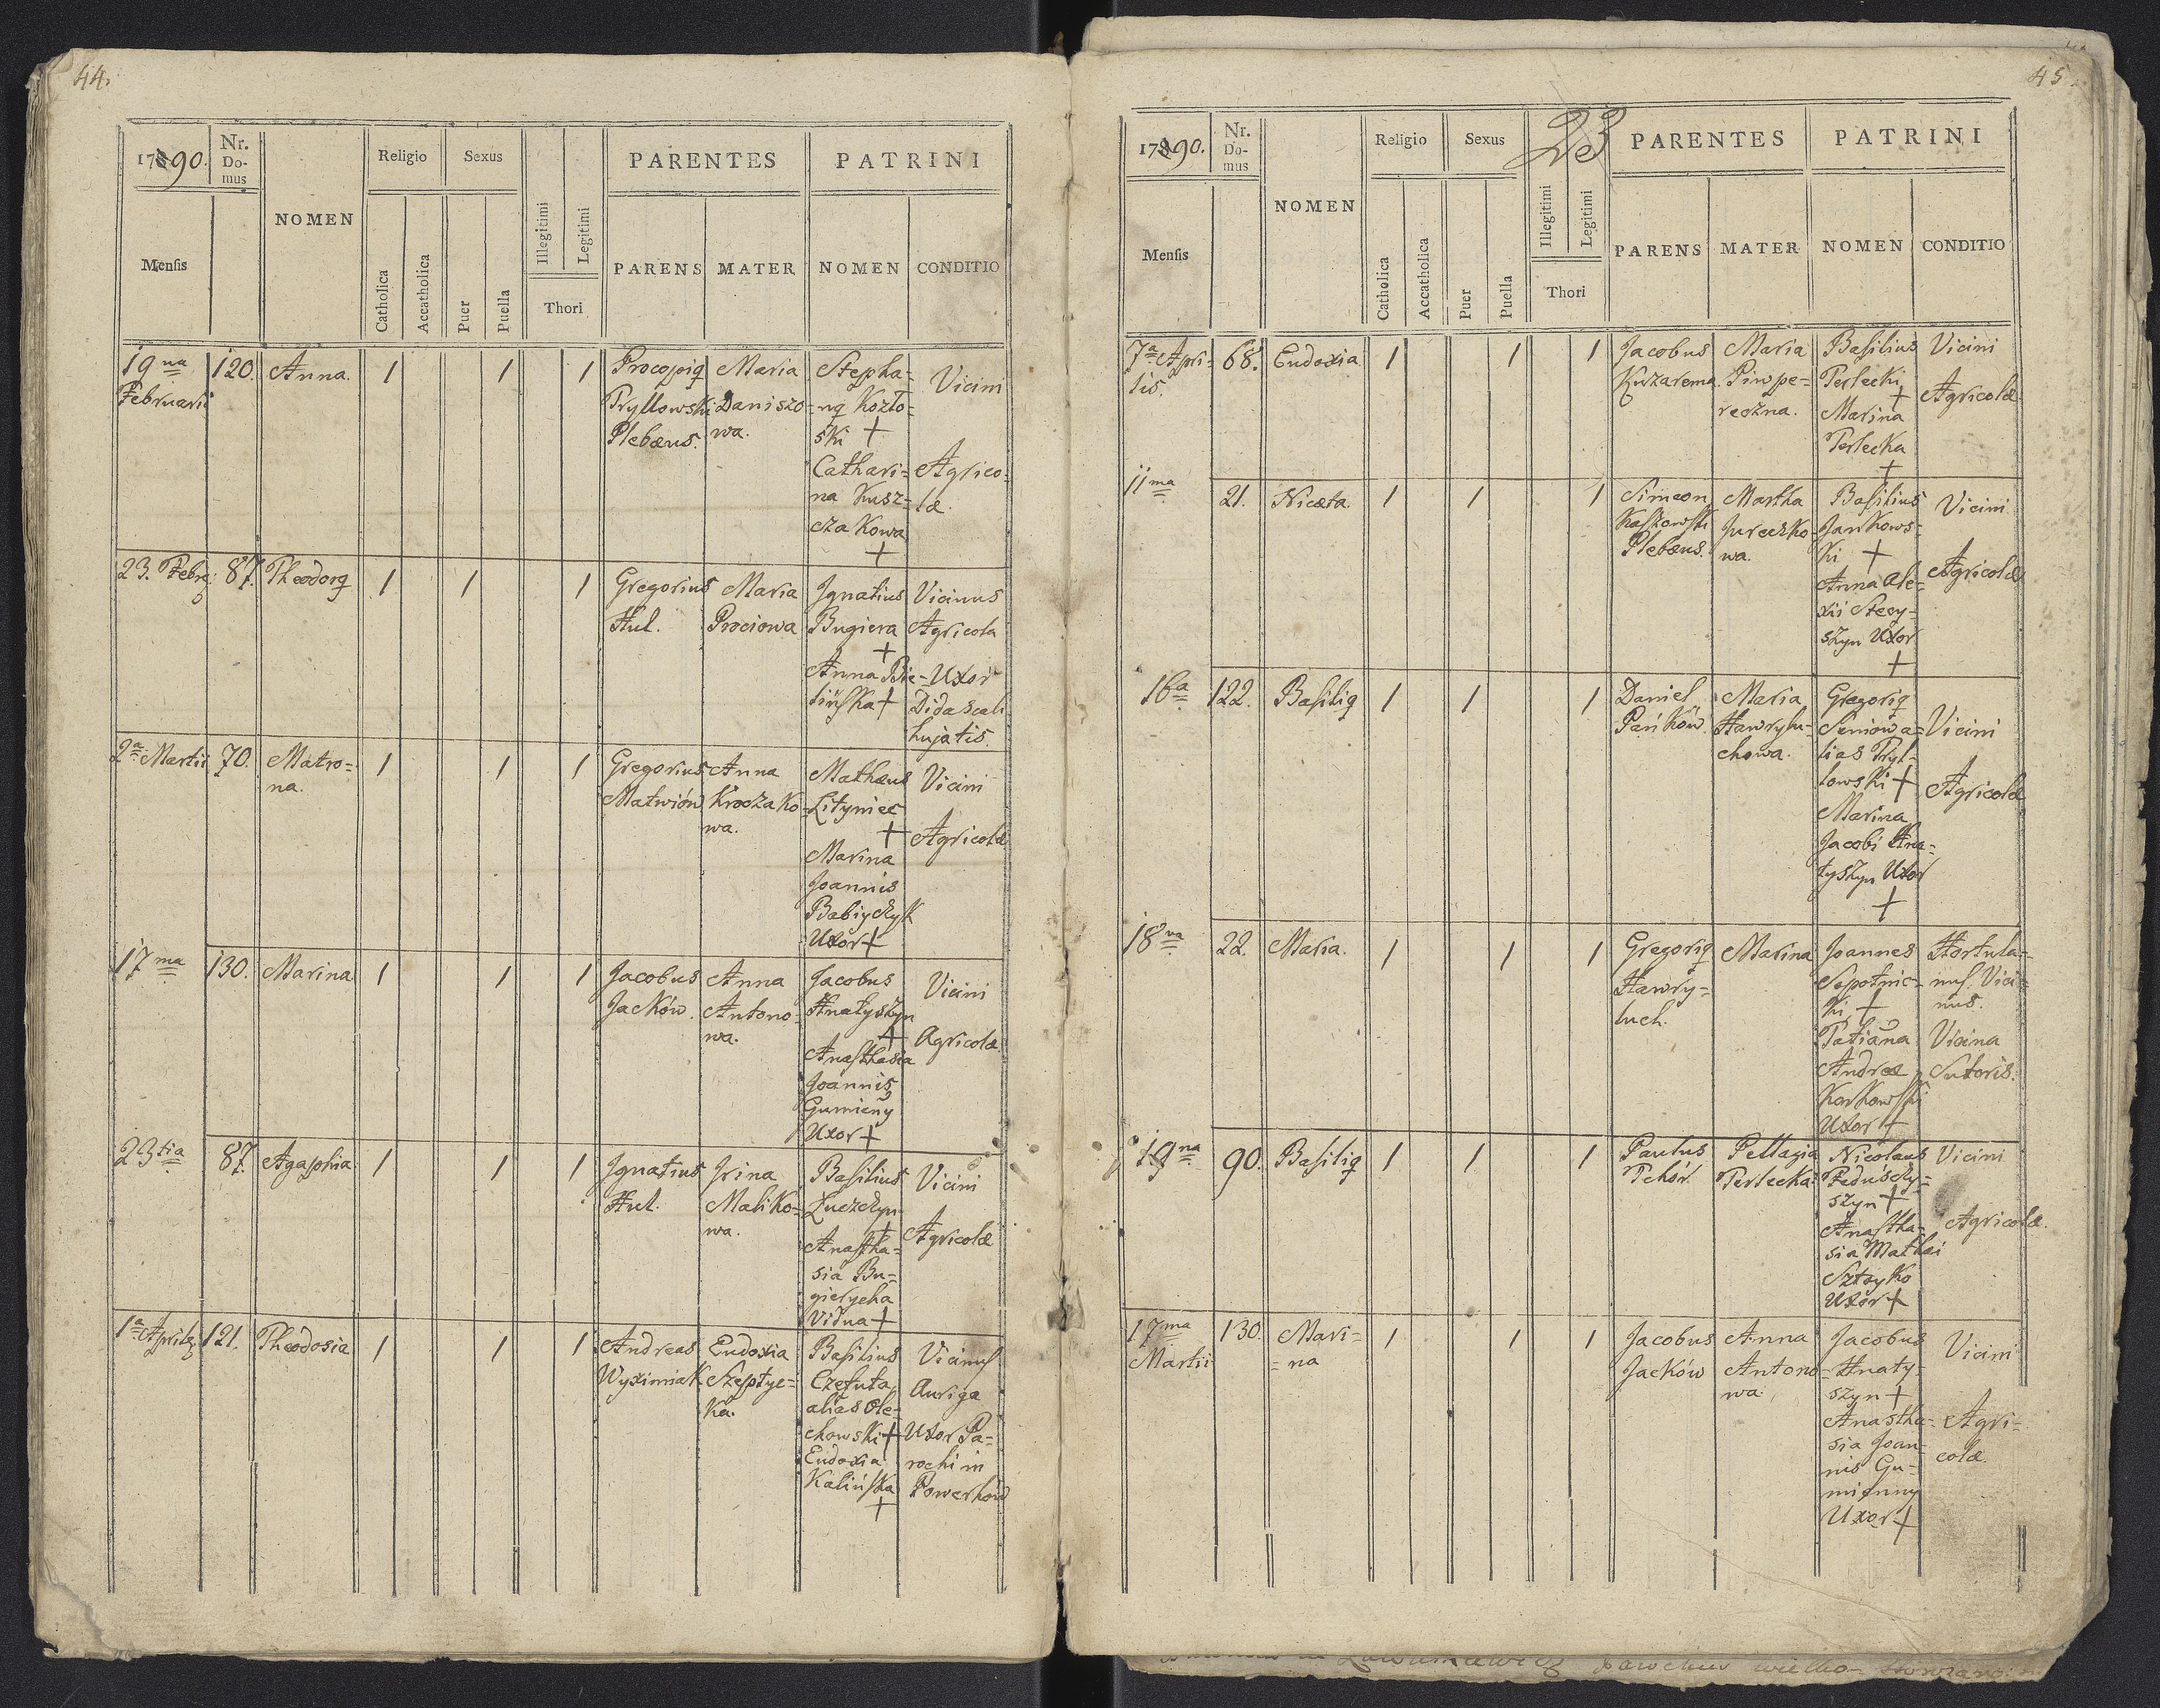 44.
1790.
Nr. Do-
mus
NOMEN
Religio
Sexus
PARENTES
PATRINI
Mensis
Catholica
Accatholica
Puer
Puella
Illegitimi
Legitimi
Thori
PARENS
MATER
NOMEN
CONDITIO
19na
Februarii
120.
Anna.
1
1
1
Procopiq
Pryllowski
Plebæus.
Maria
Daniszo-
wa.
Stepha-
nq Kozło-
ski +
Cathari-
na Kusz-
czakowa
+
Vicini
Agrico-
læ.
23. Febrq:
87.
Theodorq
1
1
1
Gregorius
Hul.
Maria
Prociowa
Ignatius
Bugiera
+
Anna Bie-
lińska +
Vicinus
Agricola
Uxor
Didascali
hujatis.
2a Martii
70.
Matro-
na.
1
1
1
Gregorius
Matwiów
Anna
Kroczako-
wa.
Mathæus
Lityniec
+
Marina
Joannis
Babiyczyk
Uxor +
Vicini
Agricolæ
17ma
130.
Marina
1
1
1
Jacobus
Jacków.
Anna
Antono-
wa.
Jacobus
Hnatyszyn
+
Anasthasia
Joannis
Gumieny
Uxor +
Vicini
Agricolæ.
23tia
87.
Agaphia
1
1
1
Ignatius
Hul.
Irina
Maliko-
wa.
Basilius
Łuczczyn
+
Anastha-
sia Bu-
gierycha
Vidua +
Vicini
Agricolæ
1a Aprilq
121.
Theodosia
1
1
1
Andreas
Wyximiak
Eudoxia
Szeptyc-
ka.
Basilius
Czeluta
alias Ole-
chowski +
Eudoxia
Kalińska
+
Vicinus
Auriga
Uxor Pa-
rochi in
Powerhów
45.
23
1790.
Nr.
Do-
mus
NOMEN
Religio
Sexus
PARENTES
PATRINI
Mensis
Catholica
Accatholica
Puer
Puella
Illegitimi
Legitimi
Thori
PARENS
MATER
NOMEN
CONDITIO
7a Apri-
lis.
68.
Eudoxia
1
1
1
Jacobus
Kuzarema.
Maria
Piwpe-
reczna.
Basilius
Terlecki
+
Marina
Terlecka
+
Vicini
Agricolæ.
11ma
21.
Nicæta.
1
1
1
Simeon
Kaszowski
Plebæus.
Martha
Jureczko-
wa.
Basilius
Jankows-
ki +
Anna Ale-
xii Stecy-
szyn Uxor
+
Vicini
Agricolæ
16a
122.
Basiliq
1
1
1
Daniel
Pańków.
Maria
Hawrylu-
chowa.
Gregoriq
Seniów a-
lias Pryl-
lowski +
Marina
Jacobi Hna-
tyszyn Uxor
+
Vicini
Agricolæ
18va
22.
Maria.
1
1
1
Gregoriq
Hawry-
luch.
Marina
Joannes
Sopotnic-
ki +
Tatiana
Andreæ
Korkowski
Uxor +
Hortula-
nus. Vici-
nus.
Vicina
Sutoris.
19na
90.
Basiliq
1
1
1
Paulus
Tchór.
Pellagia
Terlecka.
Nicolaus
Feduśczy-
szyn +
Anastha-
sia Mathæi
Sztoyko
Uxor +
Vicini
Agricolæ.
17ma
Martii
130.
Mari-
=na
1
1
1
Jacobus
Jacków
Anna
Antono-
wa.
Jacobus
Hnaty-
szyn +
Anastha-
sia Joan-
nis Gu-
mienny
Uxor +
Vicini
Agri-
colæ.